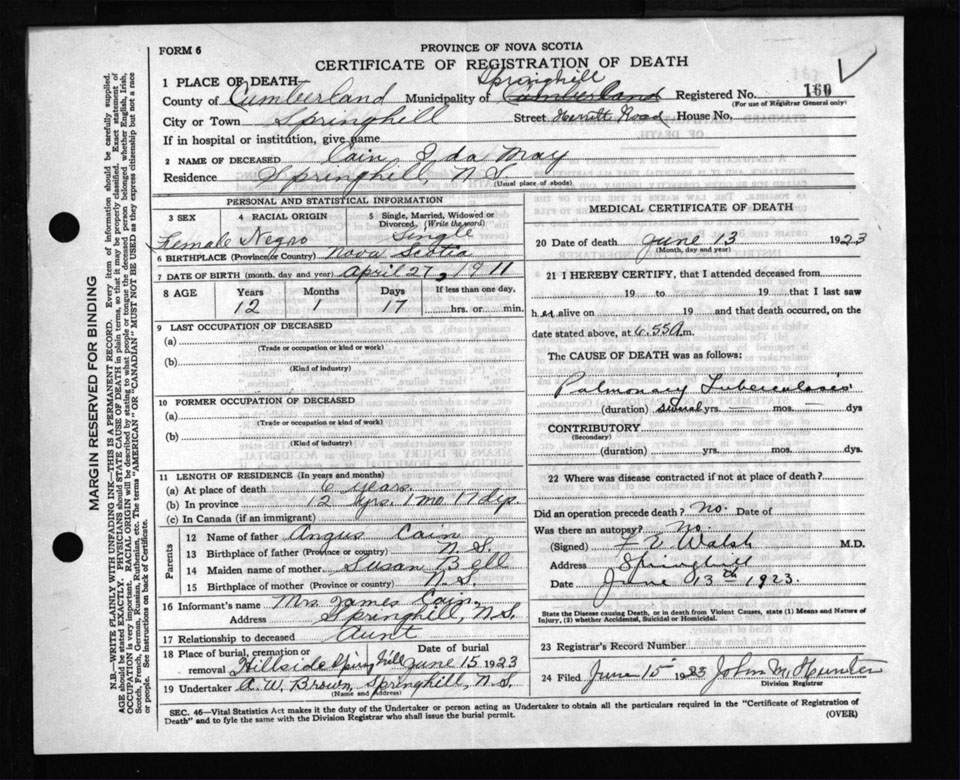 FORM 6
PROVINCE OF NOVA SCOTIA
CERTIFICATE OF REGISTRATION OF DEATH
1 PLACE OF DEATH—
Springhill
County of Cumberland Municipality of Cumberland Registered No. 160
(For use of Registrar General only)
City or Town Springhill Street Herrett Road House No.
If in hospital or institution, give name
2 NAME OF DECEASED Cain, Ida May
Residence Springhill, N.S.
(Usual place of abode)
PERSONAL AND STATISTICAL INFORMATION
3 SEX 4 RACIAL ORIGIN 5 Single, Married, Widowed or Divorced, (Write the word)
Female Negro Single
6 BIRTHPLACE (Province or Country) Nova Scotia
7 DATE OF BIRTH (month, day and year) April 27, 1911
8 AGE Years Months Days If less than one day,
12 1 17 hrs. or min.
9 LAST OCCUPATION OF DECEASED
(a)
(Trade or occupation or kind or work)
(b)
(Kind of industry)
10 FORMER OCCUPATION OF DECEASED
(a)
(Trade or occupation or kind of work)
(b)
(Kind of industry)
11 LENGTH OF RESIDENCE (In years and months)
(a) At place of death 6 years.
(b) In province 12 yrs. 1 mo. 17 dys.
(c) In Canada (if an immigrant)
Parents
12 Name of father Angus Cain
13 Birthplace of father (Province or country) N.S.
14 Maiden name of mother Susan Bell
15 Birthplace of mother (Province or country) N.S.
16 Informant's name Mrs James Cain
Address Springhill, N.S.
17 Relationship to deceased Aunt
18 Place of burial, cremation or removal Date of burial
Hillside Springhill June 15 1923
19 Undertaker A. W. Brown, Springhill, N.S.
(Name and address)
MEDICAL CERTIFICATE OF DEATH
20 Date of death June 13 1923
(Month, day and year)
21 I HEREBY CERTIFY, that I attended deceased from
19 to 19 , that I last saw
her alive on 19 and that death occurred, on the
date stated above, at 6.55A m.
The CAUSE OF DEATH was as follows:
Pulmonary Tuberculosis
(duration) several yrs. — mos. — dys
CONTRIBUTORY
(Secondary)
(duration) yrs. mos. dys.
22 Where was disease contracted if not at place of death?
Did an operation precede death? No. Date of
Was there an autopsy? No.
(Signed) Walsh M.D.
Address Springhill
Date June 13th 1923.
State the Disease causing Death, or in death from Violent Causes, state (1) Means and Nature of
Injury, (2) whether Accidental, Suicidal or Homicidal.
23 Registrar's Record Number
24 Filed June 15 1923 John M. Hunter
Division Registrar
SEC. 46—Vital Statistics Act makes it the duty of the Undertaker or person acting as Undertaker to obtain all the particulars required in the "Certificate of Registration of
Death" and to fyle the same with the Division Registrar who shall issue the burial permit.
(OVER)
MARGIN RESERVED FOR BINDING
N.B.—WRITE PLAINLY WITH UNFADING INK—THIS IS A PERMANENT RECORD. Every item of information should be carefully supplied.
AGE should be stated EXACTLY. PHYSICIANS should STATE CAUSE OF DEATH in plain terms, so that it may be properly classified. Exact statement of
OCCUPATION is very important. RACIAL ORIGIN will be described by stating to what people or tongue the deceased person belonged whether English, Irish,
Scotch, French, German, Russian, Ruthenian, etc. The terms "AMERICAN" OR "CANADIAN" MUST NOT BE USED as they express citizenship but not a race
or people. See instructions on back of Certificate.